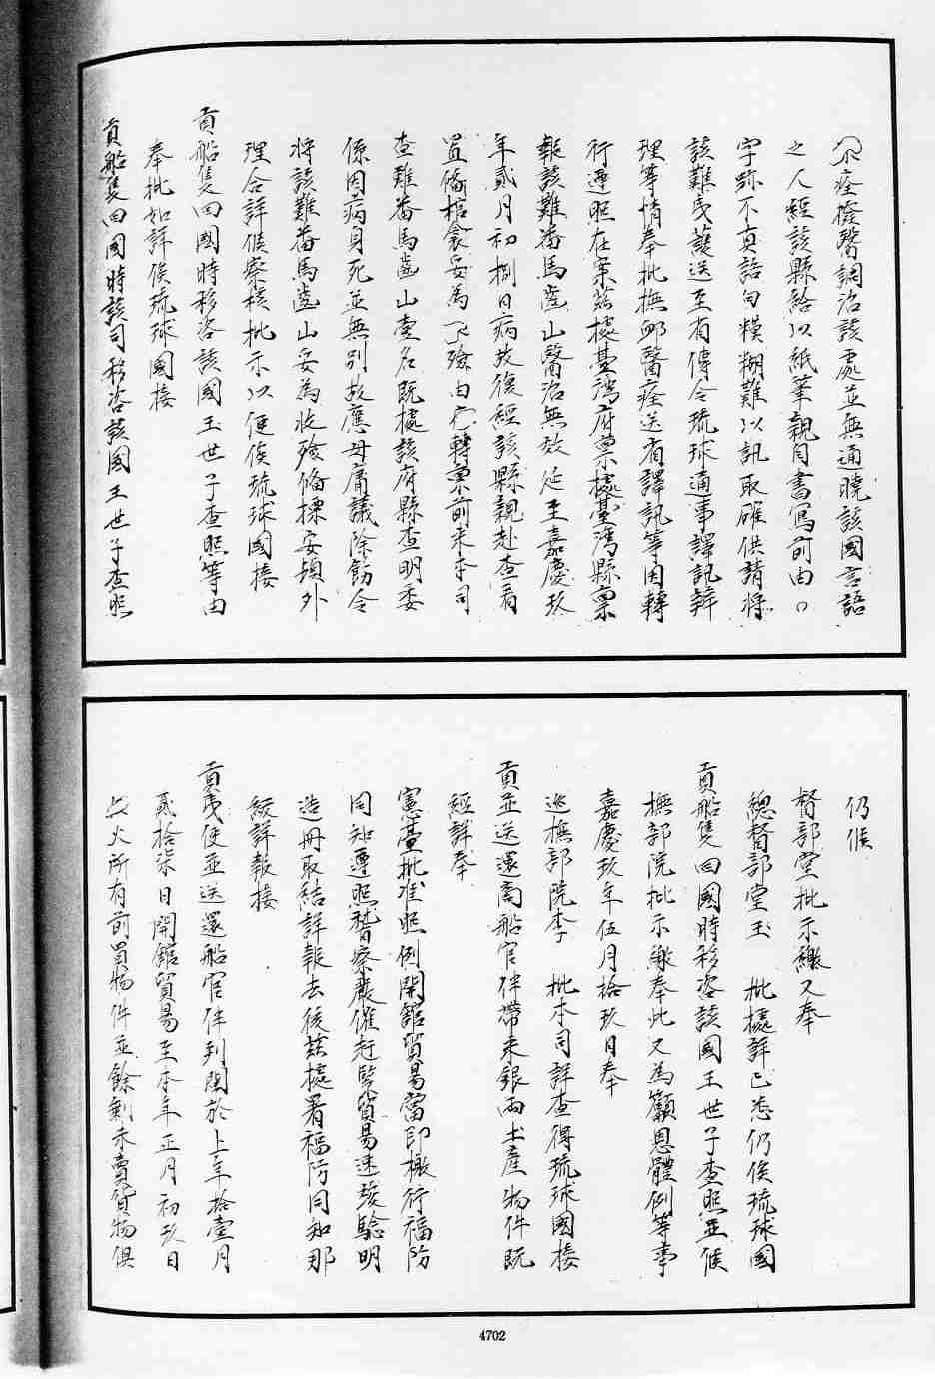 痊撥醫調治該處並無通曉該國言語
之人經該縣給以紙筆親自書寫前由
字跡不真語句糢糊難以訊取確供請將
該難夷護送至省傳令琉球通事譯訊辦
理等情奉批撫卹醫痊送省譯訊等因轉
行遵照在案茲據臺灣府稟據臺灣縣稟
報該難番馬齒山醫治無效延至嘉慶玖
年貳月初捌日病故後經該縣親赴查看
置備棺衾妥為殮由轉稟前來本司
查難番馬齒山壹名既據該府縣查明委
係因病身死並無別故應毋庸議除飭令
將該難番馬齒山妥為收殮備槥安頓外
理合詳候察核批示以便俟琉球國接
貢船隻回國時移咨該國王世子查照等由
奉批如詳俟琉球國接
貢船隻回國時該司移咨該國王世子查照
仍候
督部堂批示繳又奉
總督部堂玉 批據詳已悉仍俟琉球國
貢船隻回國時移咨該國王世子查照並候
撫部院批示繳奉此又為籲恩體例等事
嘉慶玖年伍月拾玖日奉
巡撫部院李 批本司詳查得琉球國接
貢並送還商船官伴帶來銀兩土產物件既
經詳奉
憲臺批准照例開館貿易當即檄行福防
同知遵照稽察嚴催赶緊貿易速竣驗明
造冊取結詳報去後茲據署福防同知那
綬詳報接
貢夷使並送還船官伴到閩於上年拾壹月
貳拾柒日開館貿易至本年正月初玖日
火所有前買物件並餘剩未賣貨物俱
4702